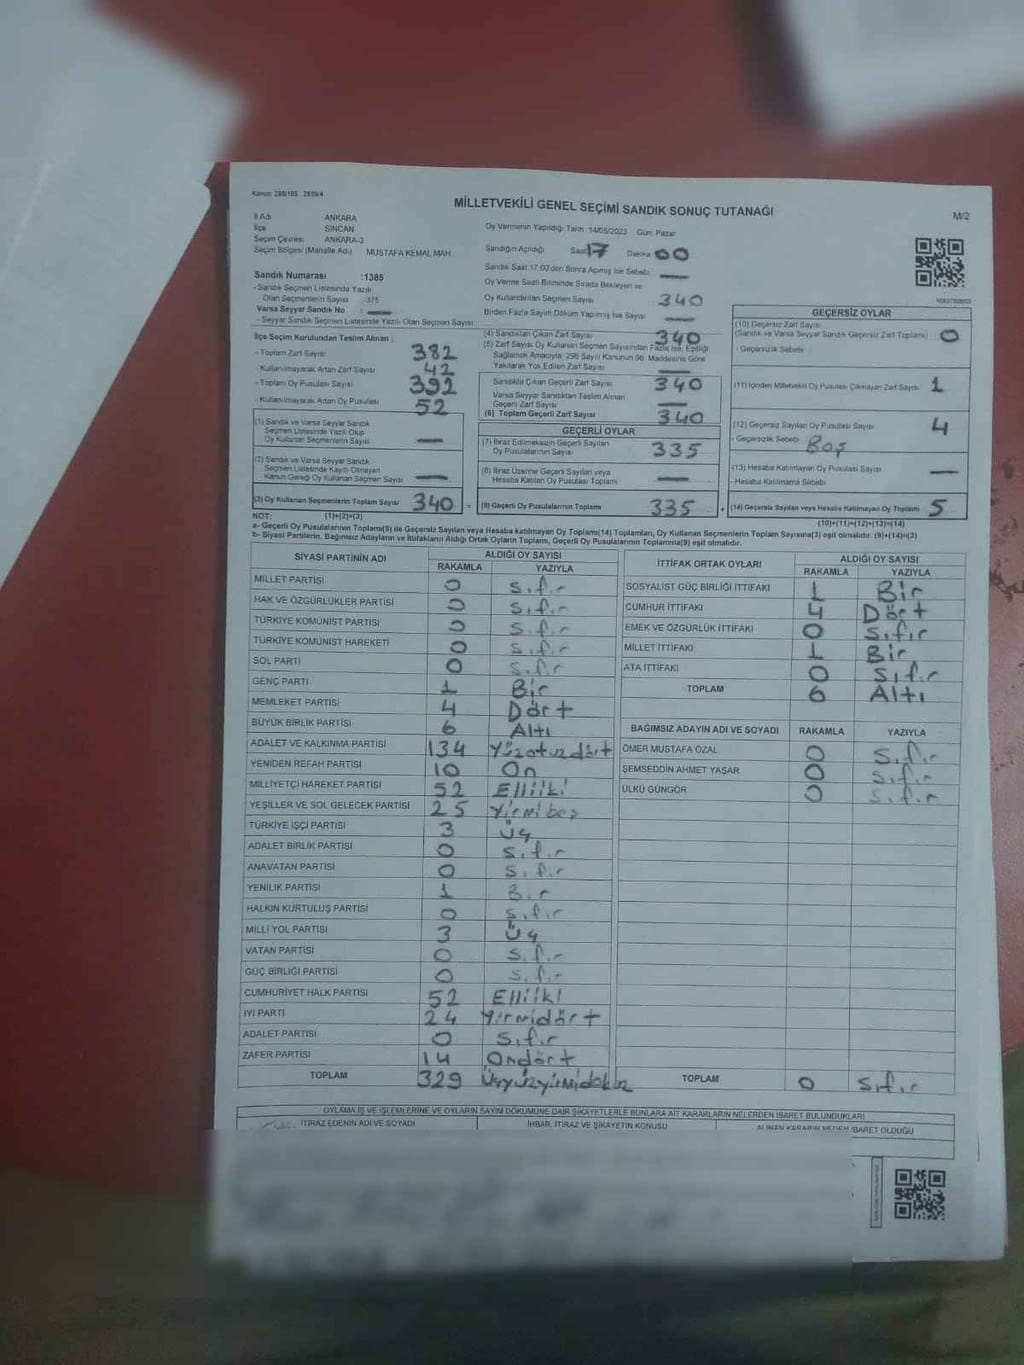 Kanun: 298/105 , 2839/4
MİLLETVEKİLİ GENEL SEÇİMİ SANDIK SONUÇ TUTANAĞI
M/2
İl Adı ANKARA
İlçe SİNCAN
Seçim Çevresi ANKARA-3
Seçim Bölgesi (Mahalle Adı) MUSTAFA KEMAL MAH.
Sandık Numarası :1385
- Sandık Seçmen Listesinde Yazılı
Olan Seçmenlerin Sayısı : 375
Varsa Seyyar Sandık No : —
- Seyyar Sandık Seçmen Listesinde Yazılı Olan Seçmen Sayısı:
İlçe Seçim Kurulundan Teslim Alınan :
- Toplam Zarf Sayısı 382
- Kullanılmayarak Artan Zarf Sayısı 42
- Toplam Oy Pusulası Sayısı 392
- Kullanılmayarak Artan Oy Pusulası 52
(1) Sandık ve Varsa Seyyar Sandık
Seçmen Listesinde Yazılı Olup
Oy Kullanan Seçmenlerin Sayısı —
(2) Sandık ve Varsa Seyyar Sandık
Seçmen Listesinde Kaydı Olmayan
Kanun Gereği Oy Kullanan Seçmen Sayısı —
(3) Oy Kullanan Seçmenlerin Toplam Sayısı 340
Oy Vermenin Yapıldığı Tarih :14/05/2023 Gün: Pazar
Sandığın Açıldığı Saat 17 Dakika 00
Sandık Saat 17:00'den Sonra Açılmış İse Sebebi : —
Oy Verme Saati Bitiminde Sırada Bekleyen ve
Oy Kullandırılan Seçmen Sayısı 340
Birden Fazla Sayım Döküm Yapılmış İse Sayısı —
(4) Sandıktan Çıkan Zarf Sayısı 340
(5) Zarf Sayısı Oy Kullanan Seçmen Sayısından Fazla İse, Eşitliği
Sağlamak Amacıyla; 298 Sayılı Kanunun 98. Maddesine Göre
Yakılarak Yok Edilen Zarf Sayısı —
Sandıkta Çıkan Geçerli Zarf Sayısı 340
Varsa Seyyar Sandıktan Teslim Alınan
Geçerli Zarf Sayısı —
(6) Toplam Geçerli Zarf Sayısı 340
GEÇERLİ OYLAR
(7) İtiraz Edilmeksizin Geçerli Sayılan
Oy Pusulalarının Sayısı 335
(8) İtiraz Üzerine Geçerli Sayılan veya
Hesaba Katılan Oy Pusulası Toplamı —
(9) Geçerli Oy Pusulalarının Toplamı 335
GEÇERSİZ OYLAR
(10) Geçersiz Zarf Sayısı
(Sandık ve Varsa Seyyar Sandık Geçersiz Zarf Toplamı) 0
- Geçersizlik Sebebi
(11) İçinden Milletvekili Oy Pusulası Çıkmayan Zarf Sayısı 1
(12) Geçersiz Sayılan Oy Pusulası Sayısı 4
- Geçersizlik Sebebi Boş
(13) Hesaba Katılmayan Oy Pusulası Sayısı —
- Hesaba Katılmama Sebebi
(14) Geçersiz Sayılan veya Hesaba Katılmayan Oy Toplamı 5
NOT: (1)+(2)=(3) (10)+(11)+(12)+(13)=(14)
a- Geçerli Oy Pusulalarının Toplamı(9) ile Geçersiz Sayılan veya Hesaba katılmayan Oy Toplamı(14) Toplamları, Oy Kullanan Seçmenlerin Toplam Sayısına(3) eşit olmalıdır. (9)+(14)=(3)
b- Siyasi Partilerin, Bağımsız Adayların ve İttifakların Aldığı Ortak Oyların Toplamı, Geçerli Oy Pusulalarının Toplamına(9) eşit olmalıdır.
SİYASİ PARTİNİN ADI ALDIĞI OY SAYISI
RAKAMLA YAZIYLA
MİLLET PARTİSİ 0 Sıfır
HAK VE ÖZGÜRLÜKLER PARTİSİ 0 Sıfır
TÜRKİYE KOMÜNİST PARTİSİ 0 Sıfır
TÜRKİYE KOMÜNİST HAREKETİ 0 Sıfır
SOL PARTİ 0 Sıfır
GENÇ PARTİ 1 Bir
MEMLEKET PARTİSİ 4 Dört
BÜYÜK BİRLİK PARTİSİ 6 Altı
ADALET VE KALKINMA PARTİSİ 134 Yüzotuzdört
YENİDEN REFAH PARTİSİ 10 On
MİLLİYETÇİ HAREKET PARTİSİ 52 Elliiki
YEŞİLLER VE SOL GELECEK PARTİSİ 25 Yirmibeş
TÜRKİYE İŞÇİ PARTİSİ 3 Üç
ADALET BİRLİK PARTİSİ 0 Sıfır
ANAVATAN PARTİSİ 0 Sıfır
YENİLİK PARTİSİ 1 Bir
HALKIN KURTULUŞ PARTİSİ 0 Sıfır
MİLLİ YOL PARTİSİ 3 Üç
VATAN PARTİSİ 0 Sıfır
GÜÇ BİRLİĞİ PARTİSİ 0 Sıfır
CUMHURİYET HALK PARTİSİ 52 Elliiki
İYİ PARTİ 24 Yirmidört
ADALET PARTİSİ 0 Sıfır
ZAFER PARTİSİ 14 Ondört
TOPLAM 329
İTTİFAK ORTAK OYLARI ALDIĞI OY SAYISI
RAKAMLA YAZIYLA
SOSYALİST GÜÇ BİRLİĞİ İTTİFAKI 1 Bir
CUMHUR İTTİFAKI 4 Dört
EMEK VE ÖZGÜRLÜK İTTİFAKI 0 Sıfır
MİLLET İTTİFAKI 1 Bir
ATA İTTİFAKI 0 Sıfır
TOPLAM 6 Altı
BAĞIMSIZ ADAYIN ADI VE SOYADI RAKAMLA YAZIYLA
ÖMER MUSTAFA ÖZAL 0 Sıfır
ŞEMSEDDİN AHMET YAŞAR 0 Sıfır
ÜLKÜ GÜNGÖR 0 Sıfır
TOPLAM 0 Sıfır
OYLAMA İŞ VE İŞLEMLERİNE VE OYLARIN SAYIM DÖKÜMÜNE DAİR ŞİKAYETLERLE BUNLARA AİT KARARLARIN NELERDEN İBARET BULUNDUKLARI
İTİRAZ EDENİN ADI VE SOYADI İHBAR, İTİRAZ VE ŞİKAYETİN KONUSU ALINAN KARARIN NEDEN İBARET OLDUĞU